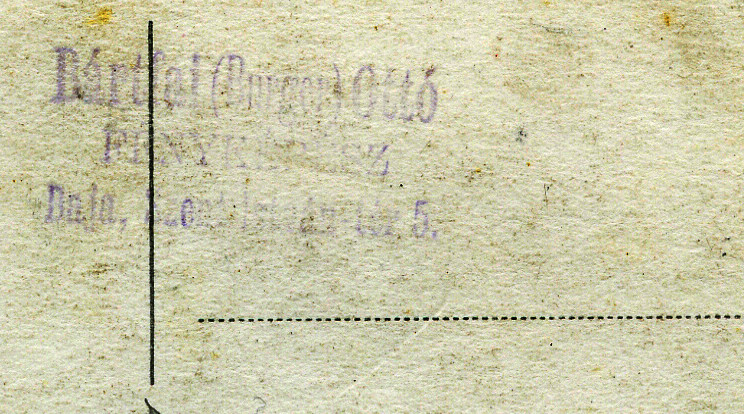 Bártfai (Burger) Ottó
FÉNYKÉPÉSZ
Baja, Szent István-tér 5.